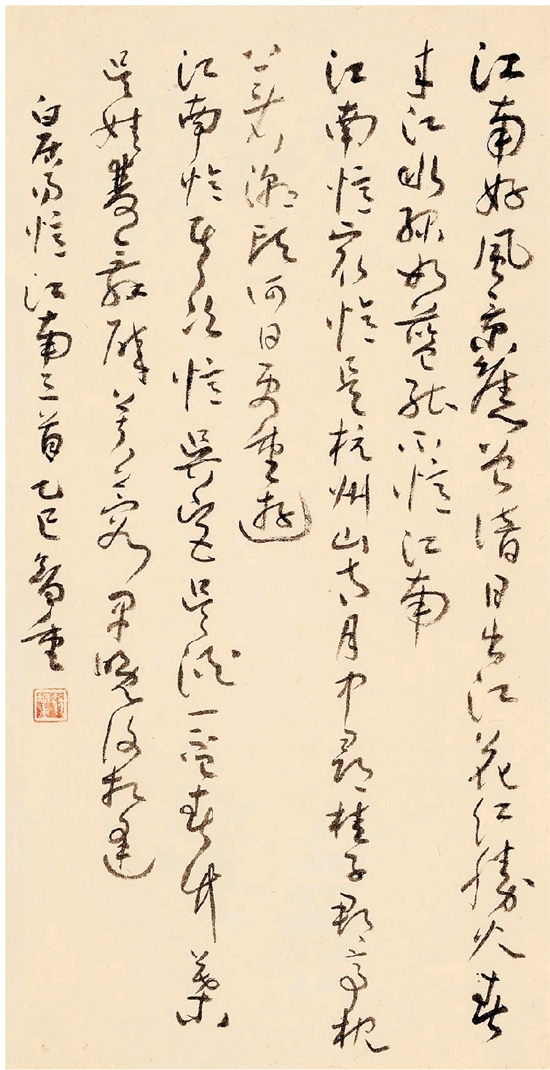 江南好風景舊曾諳日出江花紅勝火春
来江水綠如藍能不憶江南
江南憶最憶是杭州山寺月中尋桂子郡亭枕
上看潮頭何日更重遊
江南憶其次憶吳宮吳酒一盃春竹葉
吳娃雙舞醉芙蓉早晚復相逢
白居易憶江南三首乙巳